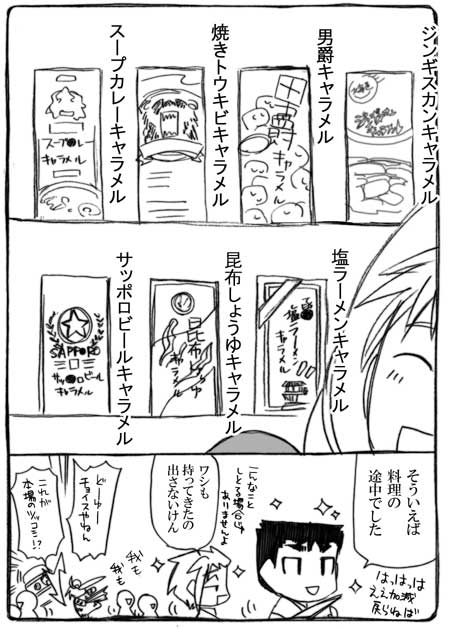 ジンギスカンキャラメル
男爵キャラメル
焼きトウキビキャラメル
スープカレーキャラメル
男爵
キャラメル
スープ●レー
キャラメル
塩ラーメンキャラメル
昆布しょうゆキャラメル
サッポロビールキャラメル
塩ラーメン
キャラメル
昆布しょうゆ
キャラメル
SAPPORO
サッ●ロビール
キャラメル
そういえば
料理の
途中でした
はっはっは
ええ加減
戻らねば
こんなこと
しとる場合じゃ
ありませんよ
ワシも
持ってきたの
出さないけん
我も
我も
どーゆー
チョイスやねん
これが
本場のツッコミ!?